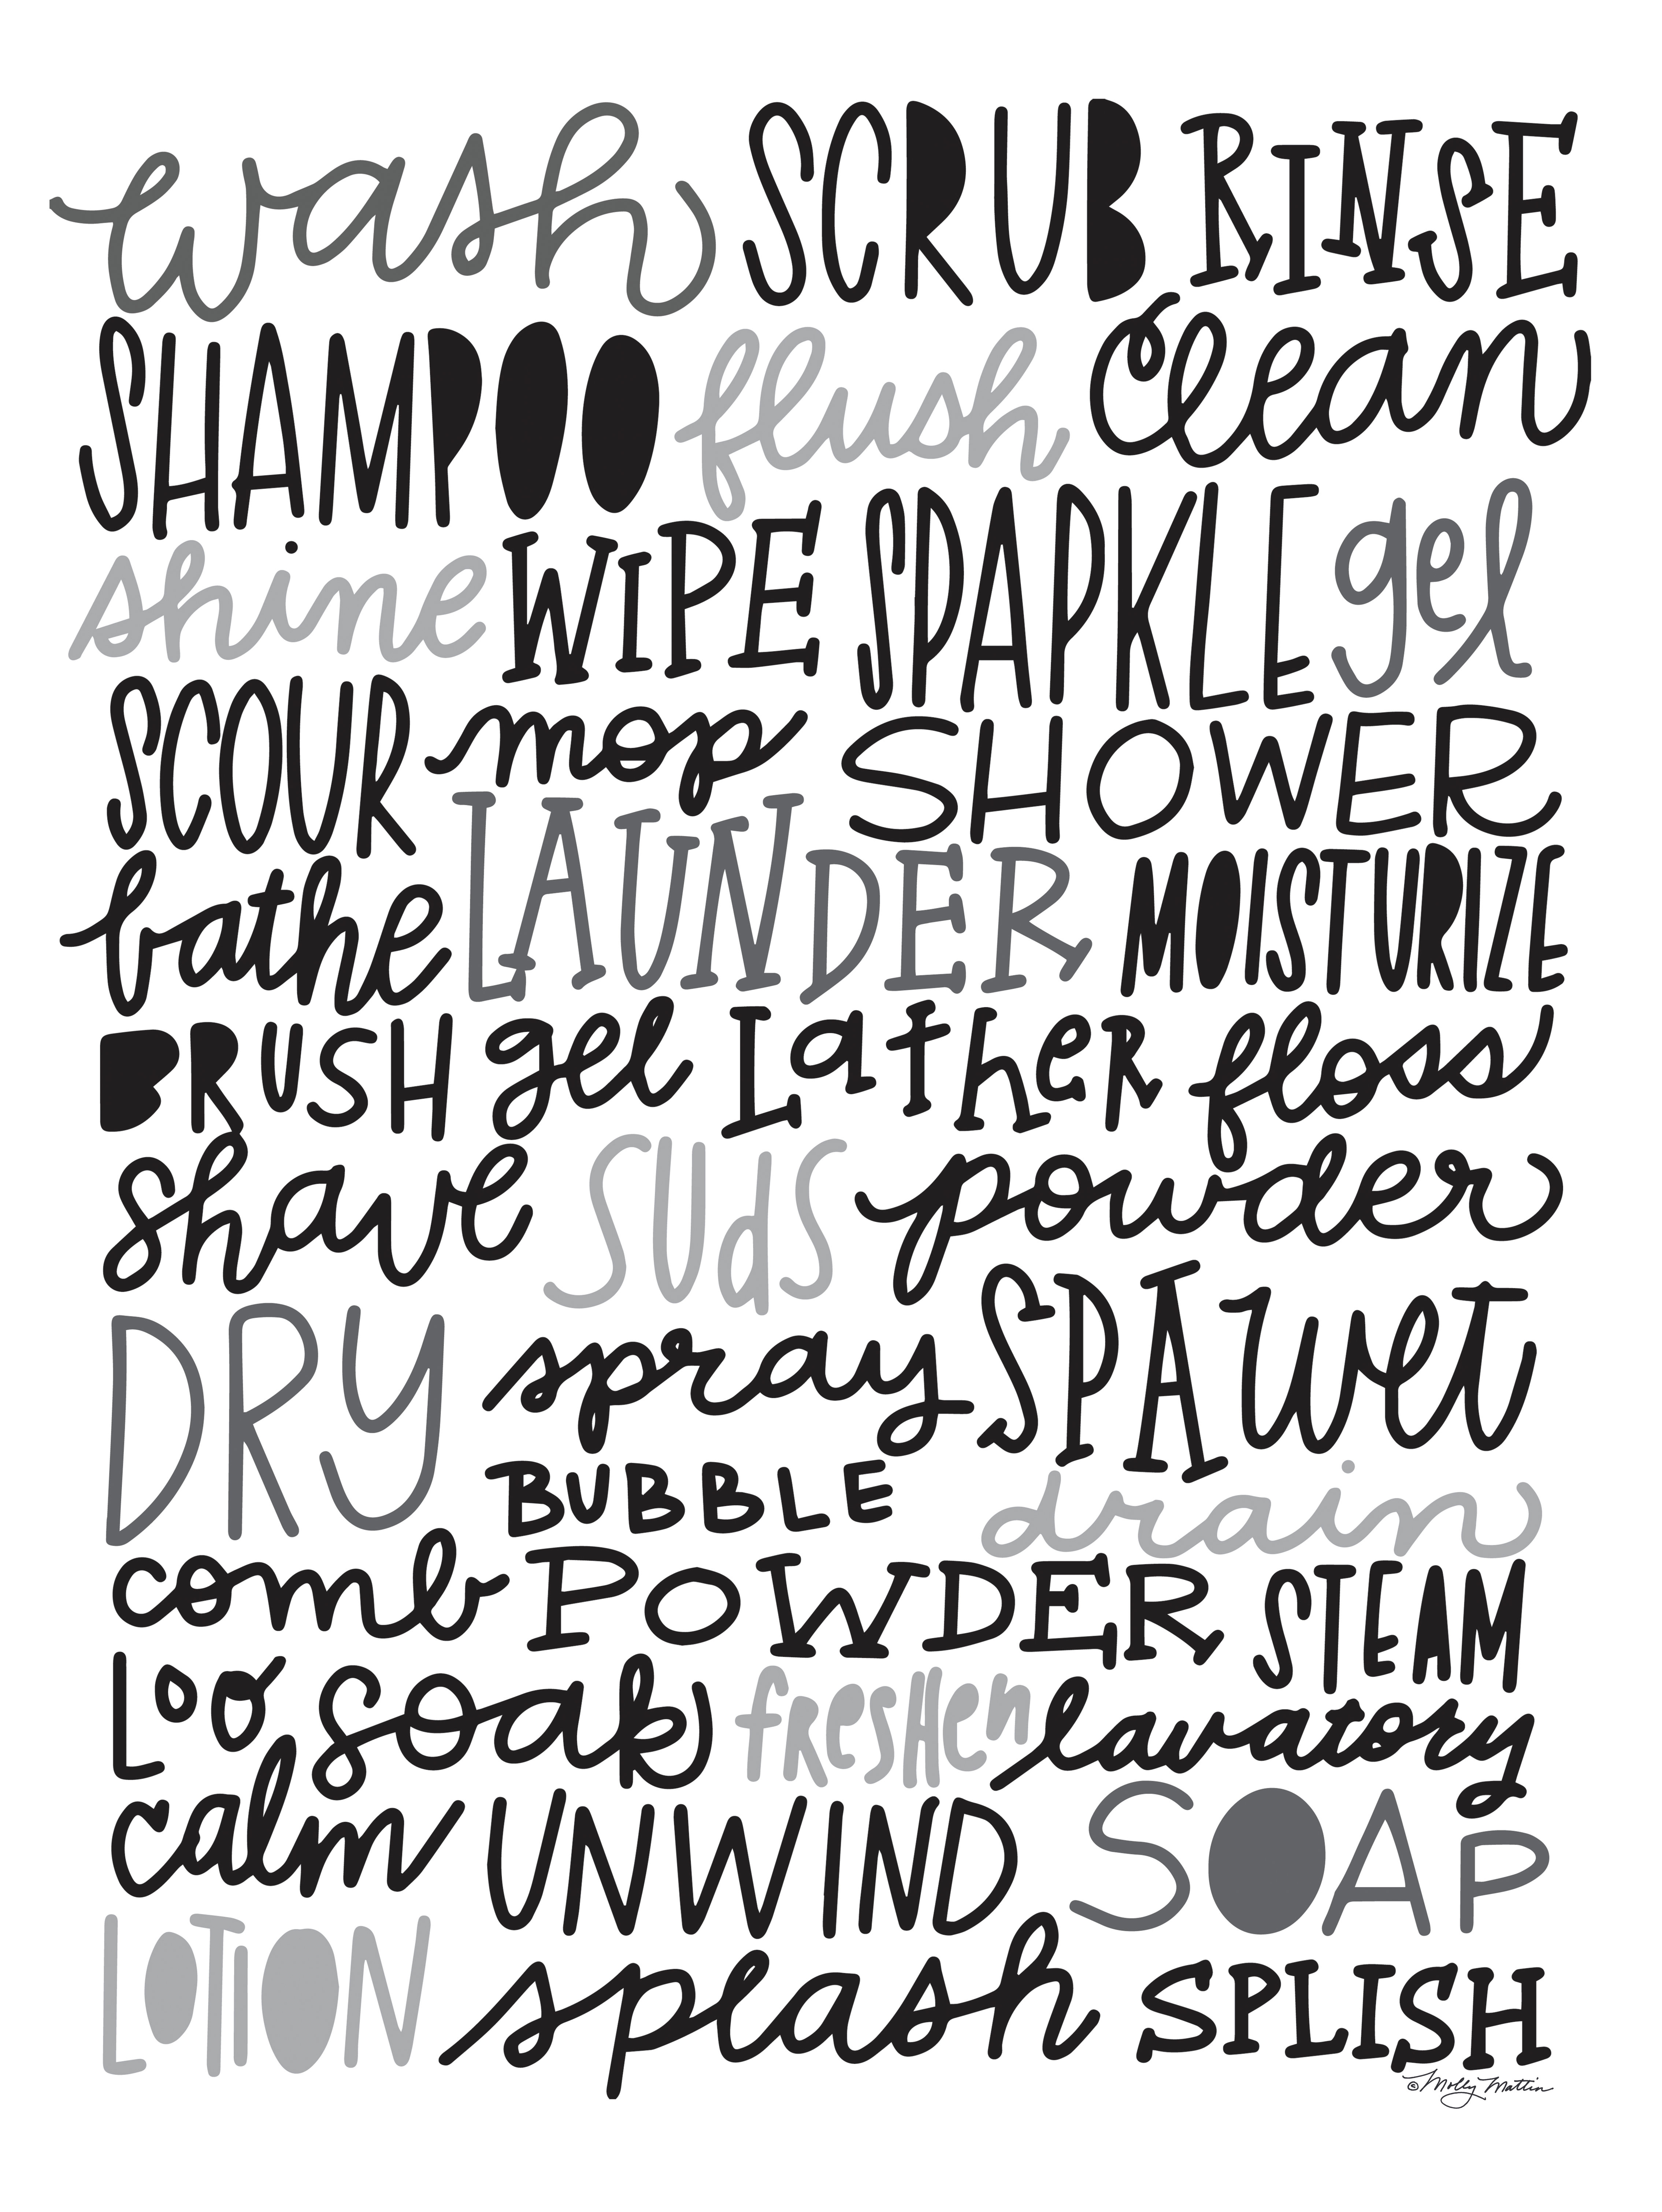 wash SCRUB RINSE
SHAMPOO flush clean
shine WIPE SPARKLE gel
SCOUR mop SHOWER
bathe LAUNDER MOISTURIZE
BRUSH gel Lather floss
shave SUdS powder
DRY spray SPA wet
BUBBLE drain
comb POWDER STEAM
Loo soak fresHen lavatory
calm UNWIND SOAP
LOTION splash SPLISH
© Molly Mattin